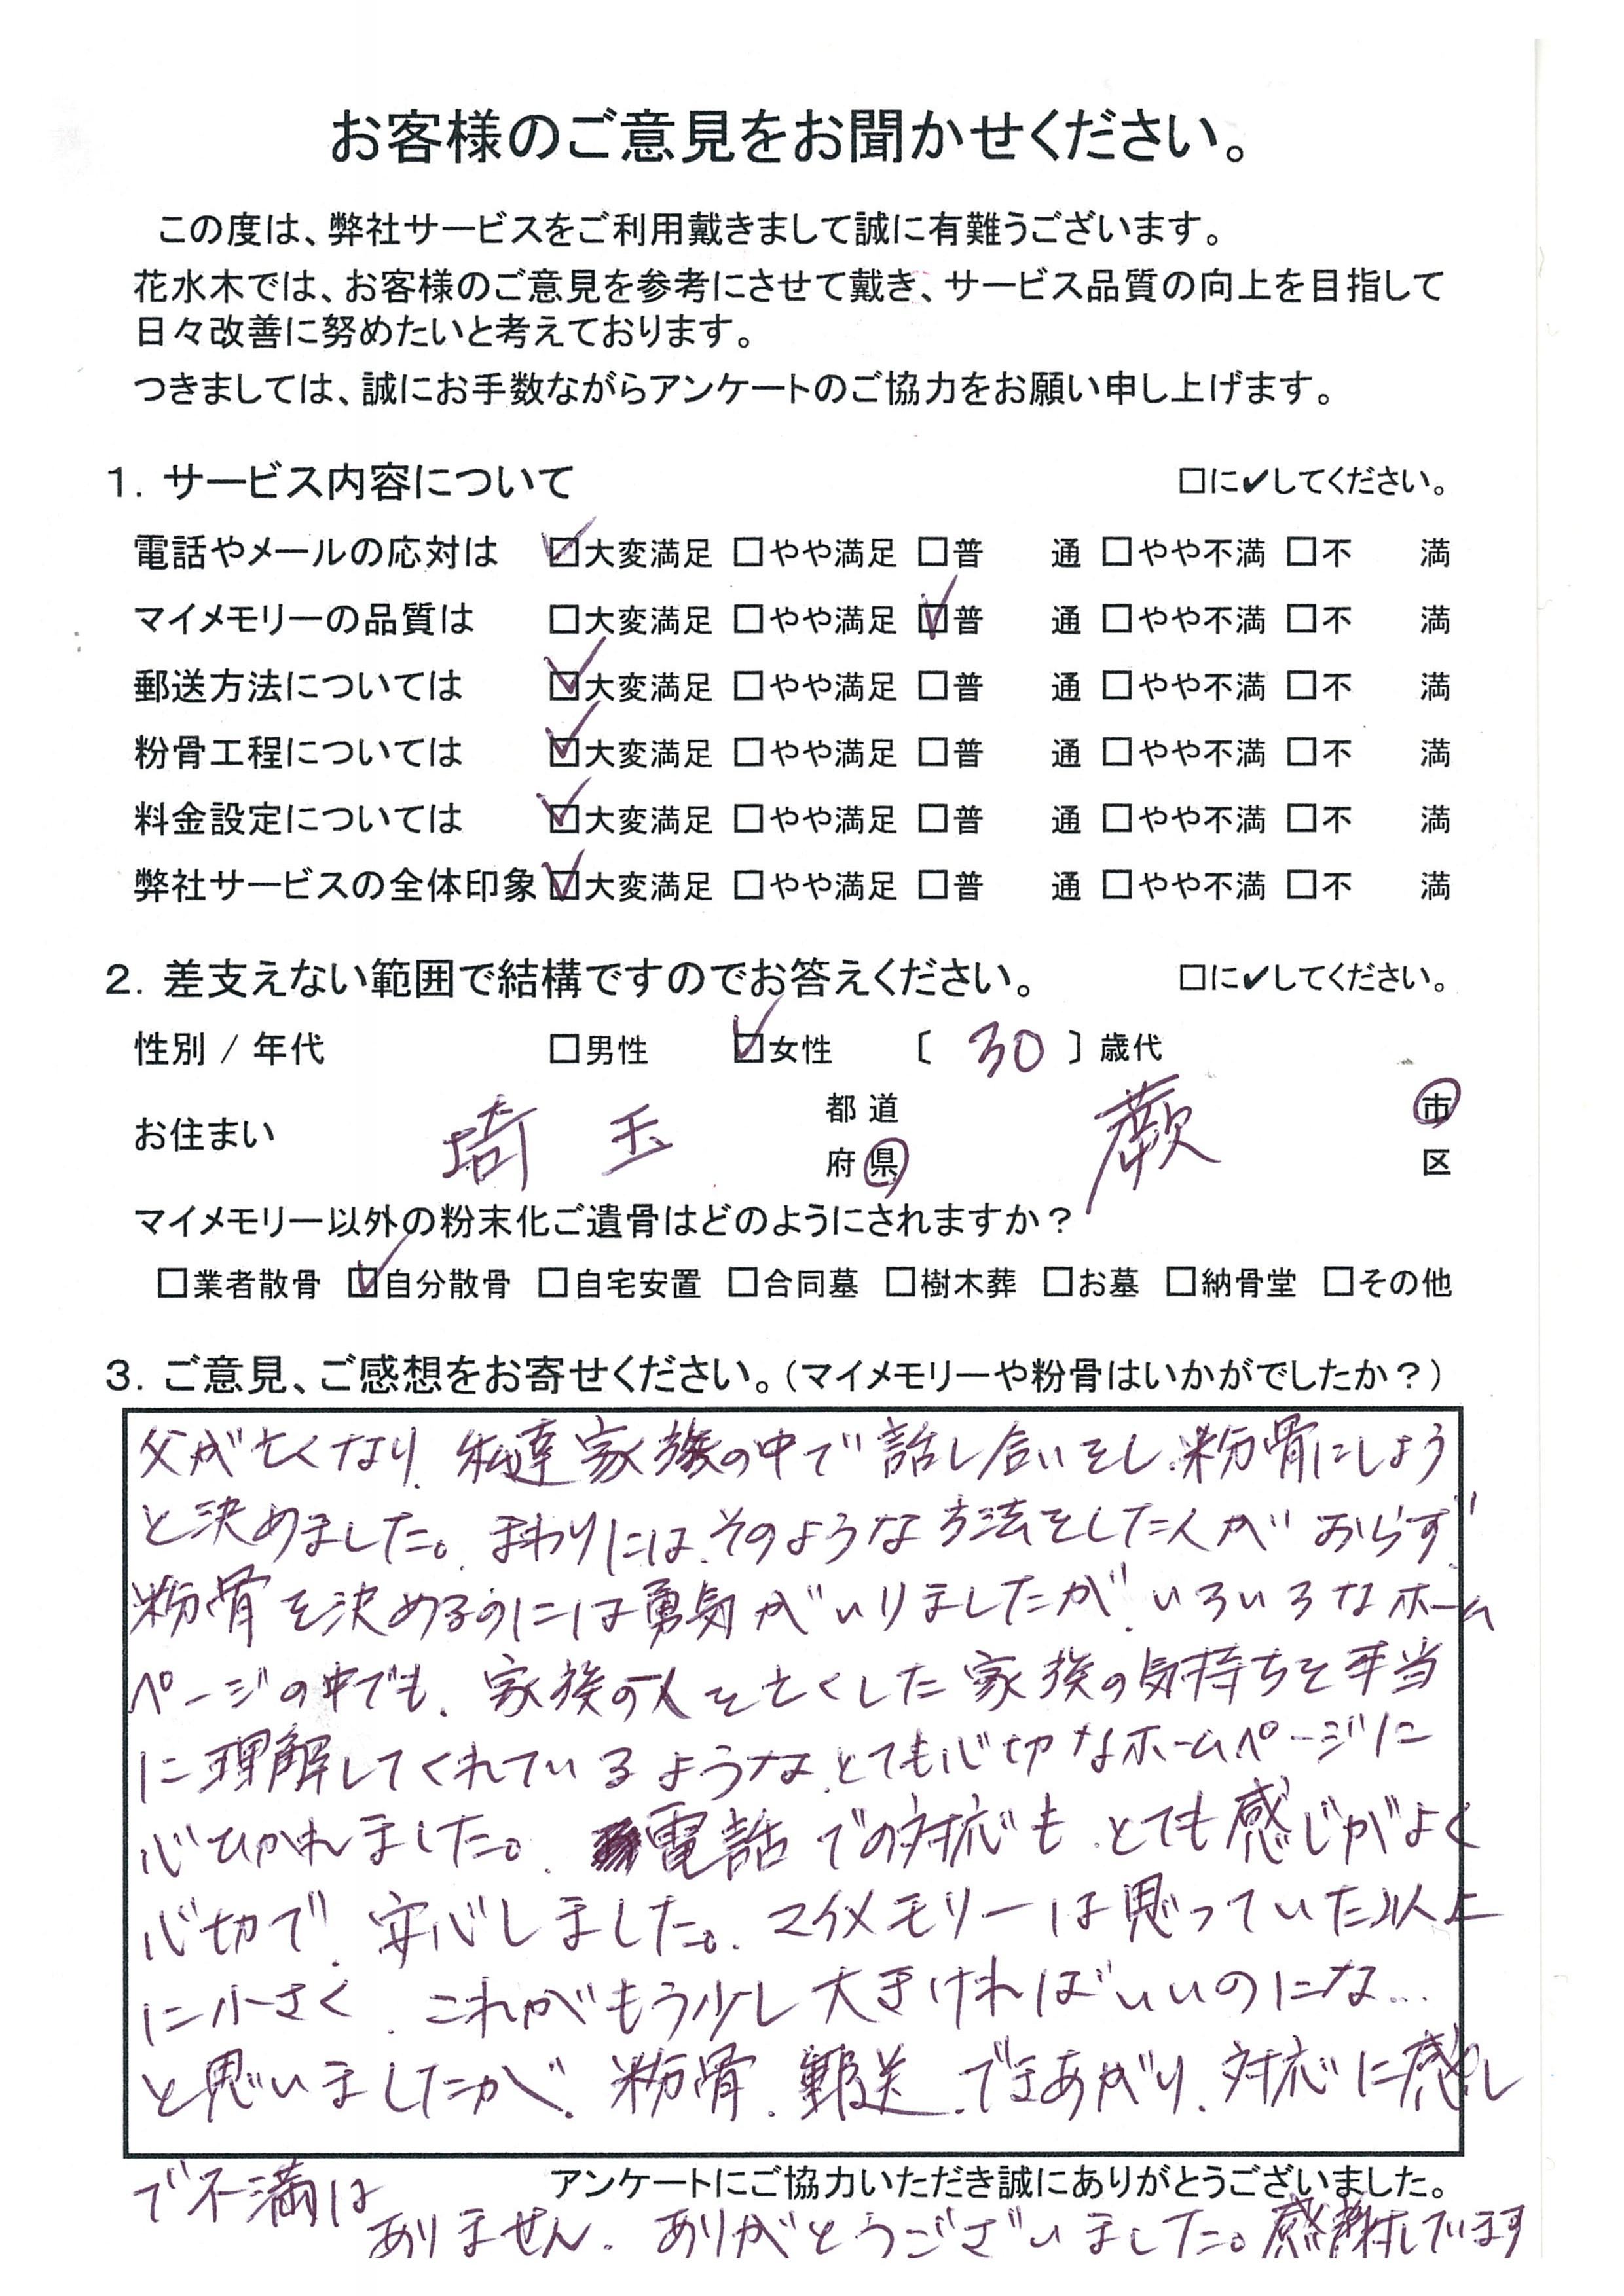 お客様のご意見をお聞かせください。
この度は、弊社サービスをご利用戴きまして誠に有難うございます。
花水木では、お客様のご意見を参考にさせて戴き、サービス品質の向上を目指して
日々改善に努めたいと考えております。
つきましては、誠にお手数ながらアンケートのご協力をお願い申し上げます。
1. サービス内容について □に✔してください。
電話やメールの応対は ☑大変満足 □やや満足 □普 通 □やや不満 □不 満
マイメモリーの品質は □大変満足 □やや満足 ☑普 通 □やや不満 □不 満
郵送方法については ☑大変満足 □やや満足 □普 通 □やや不満 □不 満
粉骨工程については ☑大変満足 □やや満足 □普 通 □やや不満 □不 満
料金設定については ☑大変満足 □やや満足 □普 通 □やや不満 □不 満
弊社サービスの全体印象 ☑大変満足 □やや満足 □普 通 □やや不満 □不 満
2. 差支えない範囲で結構ですのでお答えください。 □に✔してください。
性別 / 年代 □男性 ☑女性 〔 30 〕歳代
お住まい 埼玉 都道府県 蕨 市区
マイメモリー以外の粉末化ご遺骨はどのようにされますか?
□業者散骨 ☑自分散骨 □自宅安置 □合同墓 □樹木葬 □お墓 □納骨堂 □その他
3. ご意見、ご感想をお寄せください。(マイメモリーや粉骨はいかがでしたか?)
父が亡くなり、私達家族の中で話し合いをし、粉骨にしよう
と決めました。まわりには、そのような方法をした人がおらず、
粉骨を決めるのには勇気がいりましたが、いろいろなホーム
ページの中でも、家族の人を亡くした家族の気持ちを本当
に理解してくれているような、とても心切なホームページに
心ひかれました。電話での対応も、とても感じがよく
心切で、安心しました。マイメモリーは思っていた以上
に小さく、これがもう少し大きければいいのにな…
と思いましたが、粉骨、郵送、できあがり、対応に感し
で不満は
アンケートにご協力いただき誠にありがとうございました。
ありません。ありがとうございました。感謝しています